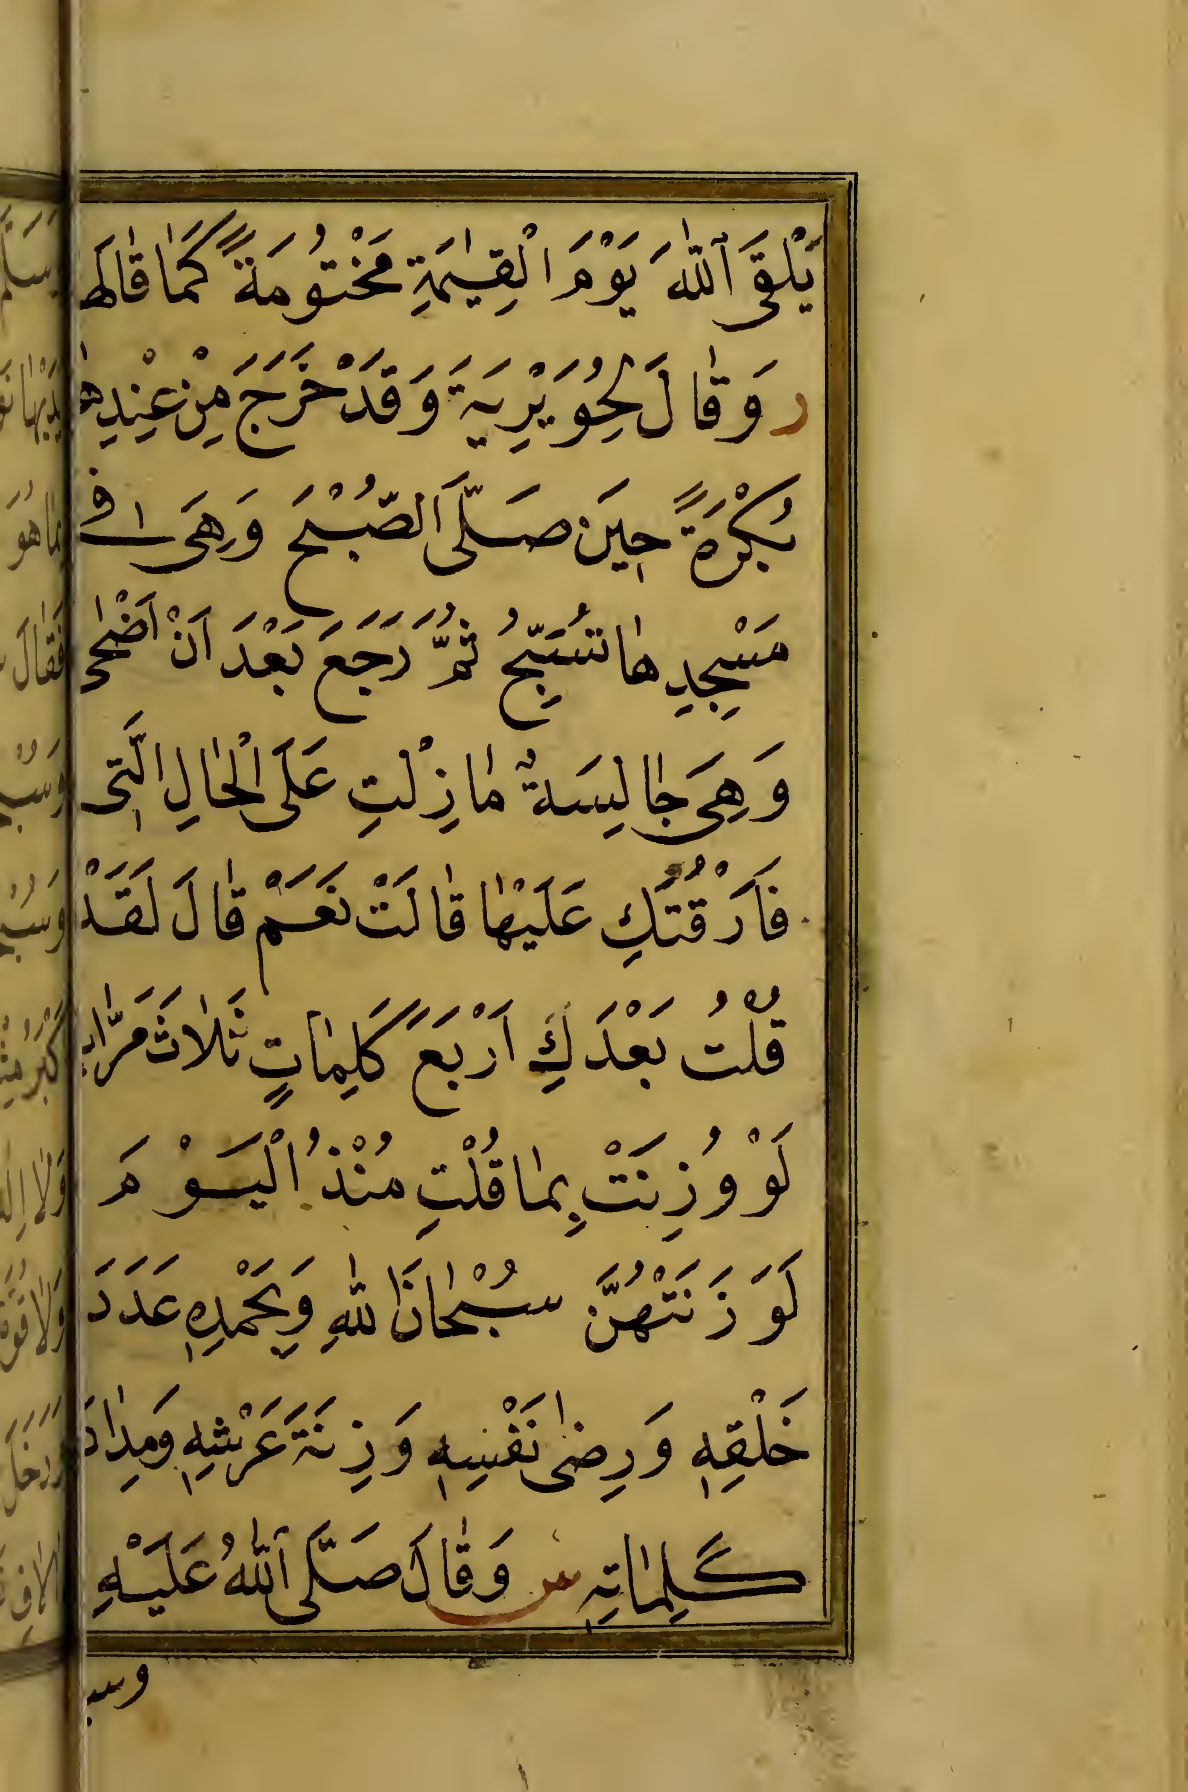 يَلْقَى ٱللّٰهَ يَوْمَ الْقِيٰمَةِ مَخْتُومَةً كَمٰا قٰالَهٰا
ر وَقٰالَ لِجُوَيْرِيَةَ وَقَدْ خَرَجَ مِنْ عِنْدِهٰا
بُكْرَةً حِينَ صَلَّى الصُّبْحَ وَهِىَ فى
مَسْجِدِهٰا تُسَبِّحُ ثُمَّ رَجَعَ بَعْدَ اَنْ اَضْحٰى
وَهِىَ جٰالِسَةٌ مٰا زِلْتِ عَلَى الْحٰالِ الَّتِى
فَارَقْتُكِ عَلَيْهٰا قٰالَتْ نَعَمْ قٰالَ لَقَدْ
قُلْتُ بَعْدَكِ اَرْبَعَ كَلِمٰاتٍ ثَلٰاثَ مَرّٰاتٍ
لَوْ وُزِنَتْ بِمٰا قُلْتِ مُنْذُ الْيَوْمَ
لَوَزَنَتْهُنَّ سُبْحٰانَ اللّٰهِ وَبِحَمْدِهِ عَدَدَ
خَلْقِهِ وَرِضٰى نَفْسِهِ وَزِنَةَ عَرْشِهِ وَمِدٰادَ
كَلِمٰاتِهِ س وَقٰالَ صَلَّى ٱللّٰهُ عَلَيْهِ